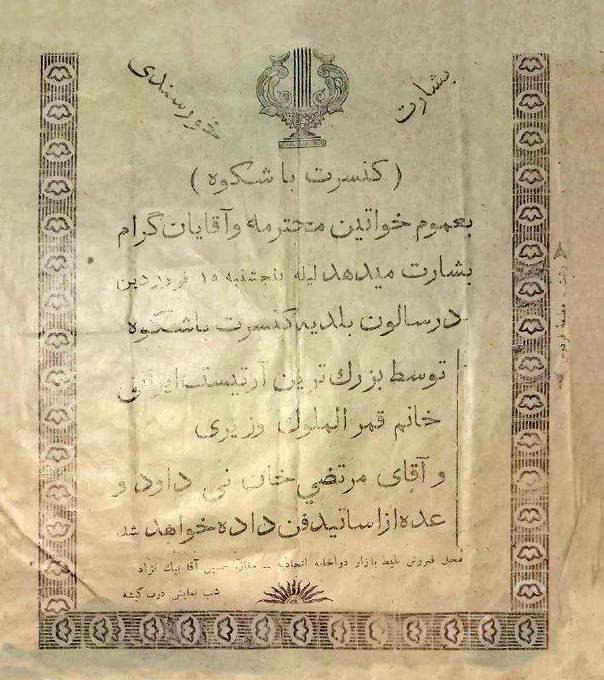 بشارت
خورسندی
( کنسرت با شکوه )
بعموم خواتین محترمه و آقایان گرام
بشارت میدهد لیله پنجشنبه ۱۵ فروردین
در سالون بلدیه کنسرت باشکوه
توسط بزرك ترین آرتیست ایرانی
خانم قمر الملوك وزیری
و آقای مرتضي خان نی داود و
عده از اساتید فن داده خواهد شد
محل فروش بلیط بازار دواخانه اتحادیه – مغازه حسین آقا بیك نژاد
شب نمایش درب گیشه